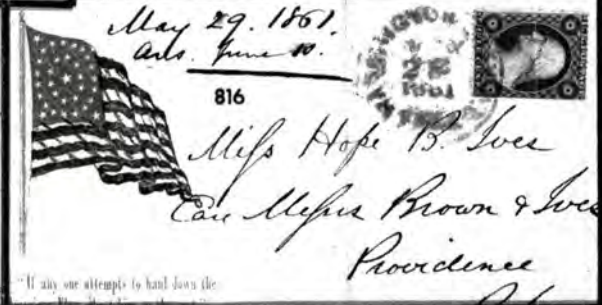 May 29. 1861.
Ans. June 10.
816
WASHINGTON
1861
Miss Hope B. Ives
Care Messrs Brown & Ives
Providence
"If any one attempts to haul down the